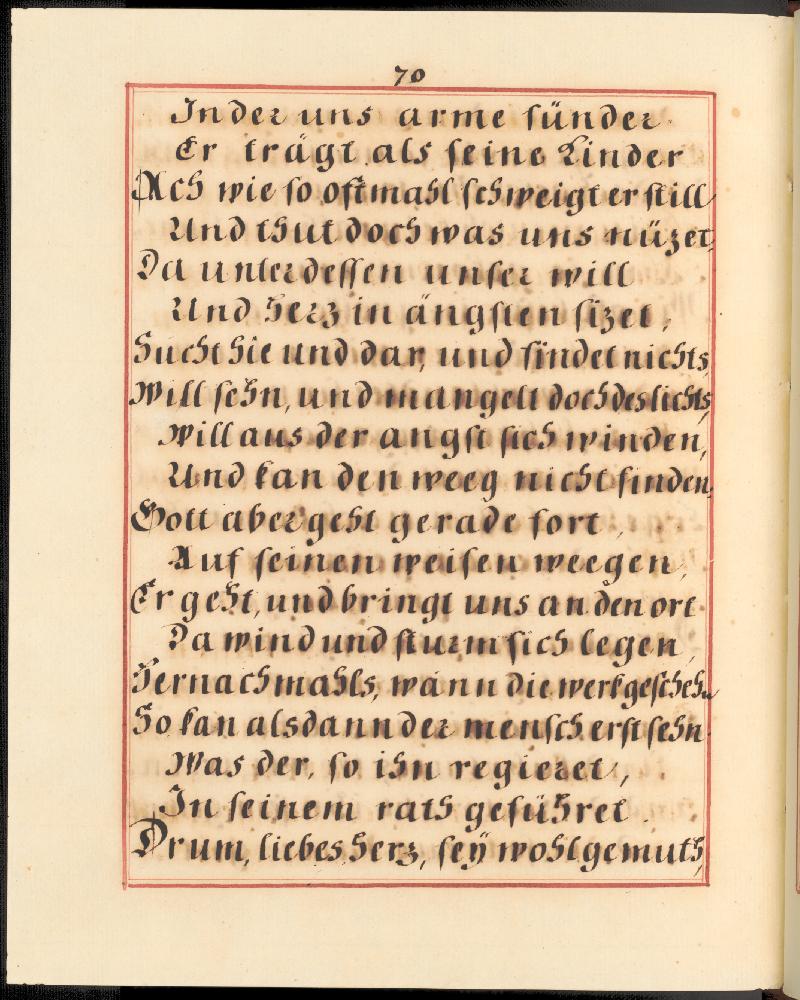 70
In der uns arme sünder
Er trägt als seine Kinder
Ach wie so oftmahl schweigt er still
Und thut doch was uns nüzet,
Da unterdessen unser will
Und Herz in ängsten sizet,
Sucht hie und dar, und findet nichts,
Will sehn, und mangelt doch des lichts,
Will aus der angst sich winden,
Und kan den weeg nicht finden,
Gott aber geht gerade fort,
Auf seinen weisen weegen,
Er geht, und bringt uns an den ort
Da wind und sturm sich legen,
Hernachmahls, wann die werk geschehn
So kan alsdann der mensch erst sehn
Was der, so ihn regieret,
In seinem rath geführet.
Drum, liebes Herz, seÿ wohlgemuth,